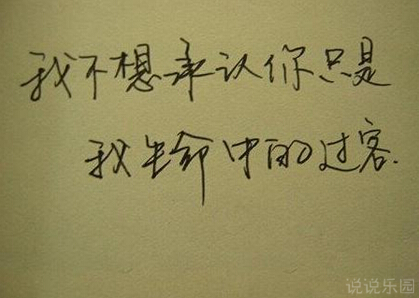 我不想承认你只是
我生命中的过客.
说说乐园